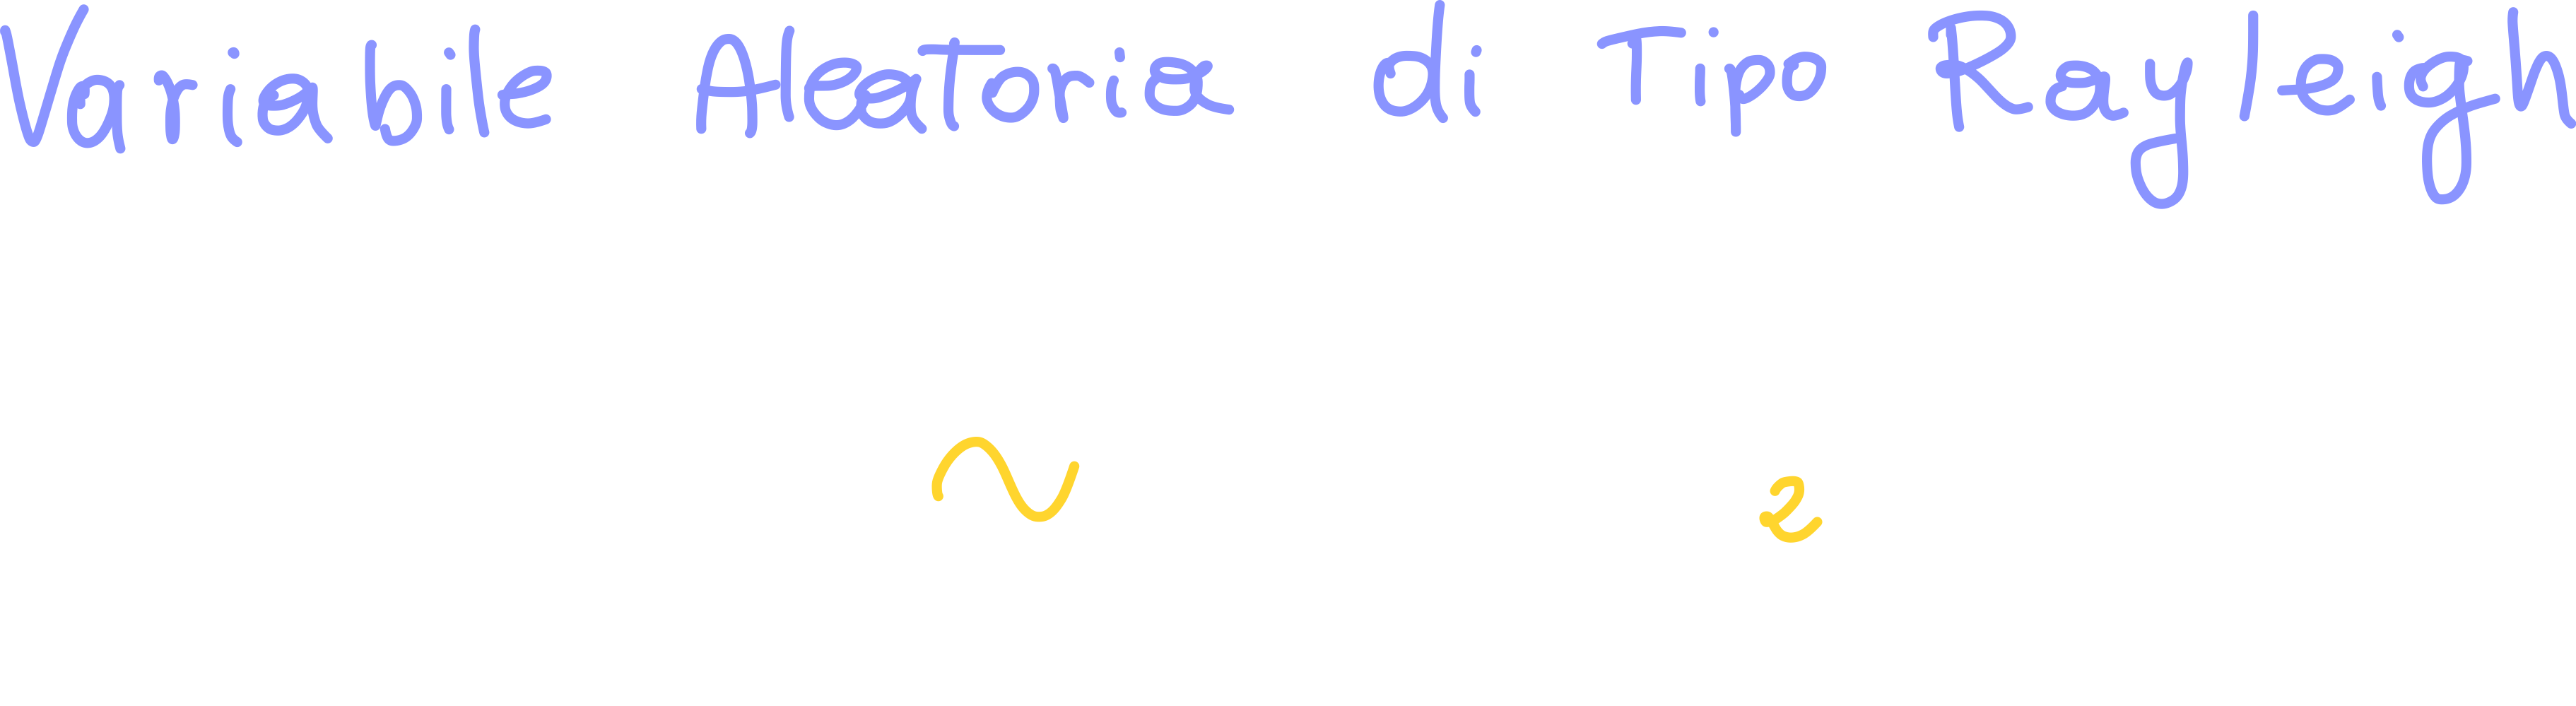 Variabile Aleatoria di Tipo Rayleigh
~ 2